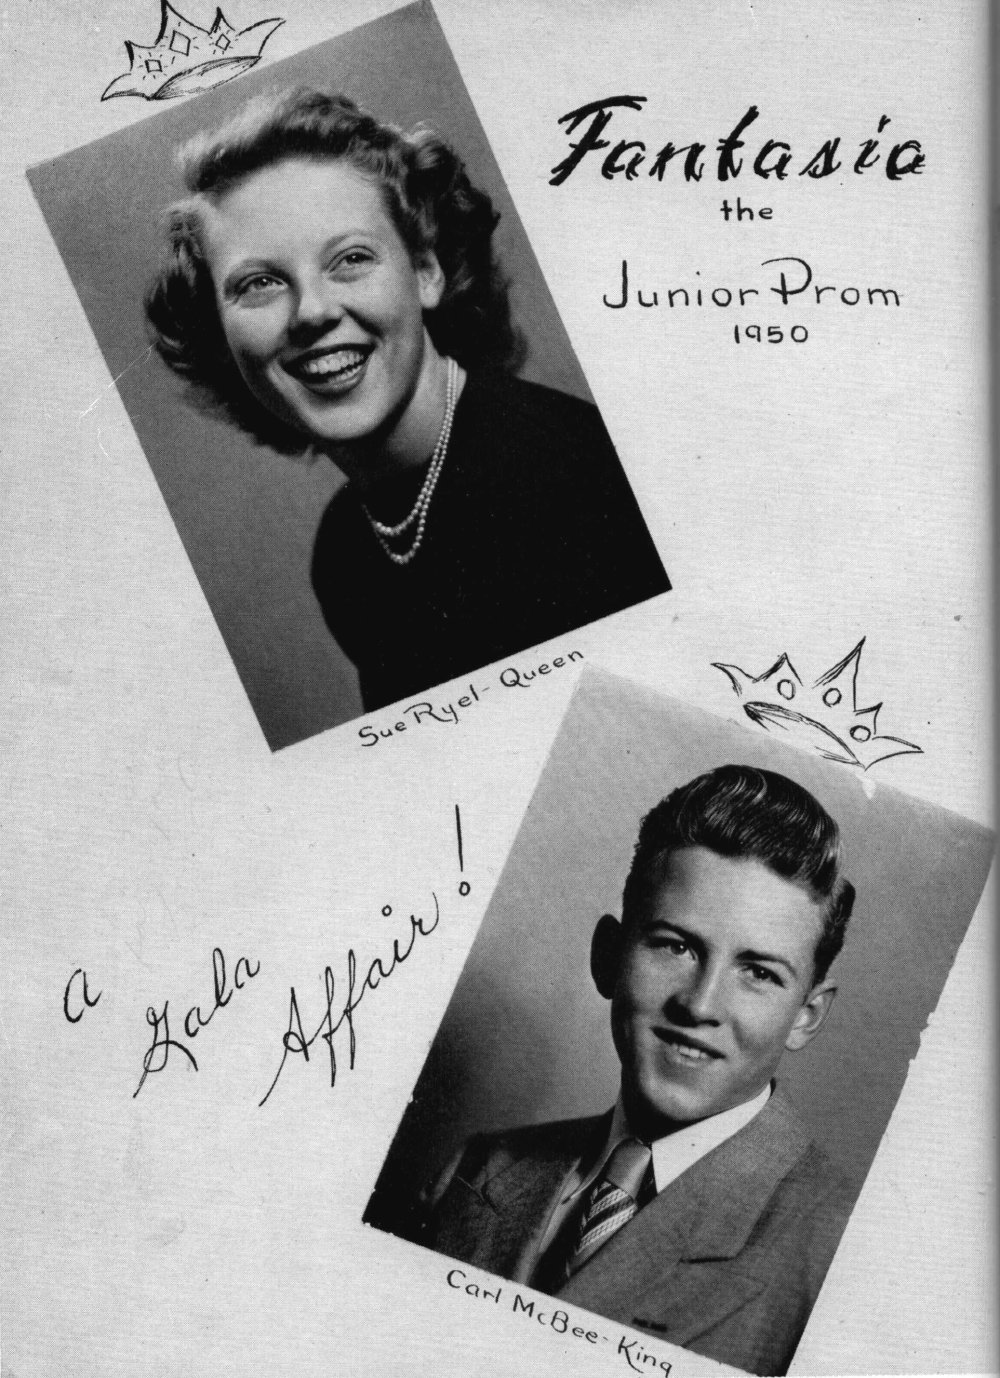 Fantasia
the
Junior Prom
1950
Sue Ryel - Queen
A
Gala
Affair!
Carl McBee - King